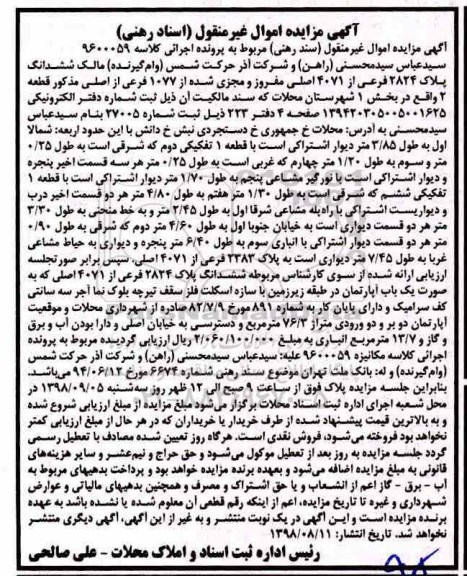 آگهی مزایده اموال غیرمنقول (اسناد رهنی)
آگهی مزایده اموال غیرمنقول (سند رهنی) مربوط به پرونده اجرائی کلاسه ۹۶۰۰۰۵۹
سیدعباس سیدمحسنی (راهن) و شرکت آذر حرکت شمس (وام‌گیرنده) مالک ششدانگ
پلاک ۲۸۲۴ فرعی از ۴۰۷۱ اصلی مفروز و مجزی شده از ۱۰۷۷ فرعی از اصلی مذکور قطعه
۲ واقع در بخش ۱ شهرستان محلات که سند مالکیت آن ذیل ثبت شماره دفتر الکترونیکی
۱۳۹۴۲۰۳۰۵۰۰۵۰۰۱۶۲۵ صفحه ۴ دفتر ۲۲۳ ذیل ثبت شماره ۲۷۰۰۵ بنام سیدعباس
سیدمحسنی به آدرس: محلات خ جمهوری خ دستجردی نبش خ دانش با این حدود اربعه: شمالا
اول به طول ۳/۸۵ متر دیوار اشتراکی است با قطعه ۱ تفکیکی دوم که شرقی است به طول ۰/۲۵
متر و سوم به طول ۱/۲۰ متر چهارم که غربی است به طول ۰/۲۵ متر هر سه قسمت اخیر پنجره
و دیوار اشتراکی است با نورگیر مشاعی پنجم به طول ۱/۷۰ متر دیوار اشتراکی است با قطعه ۱
تفکیکی ششم که شرقی است به طول ۱/۳۰ متر هفتم به طول ۴/۸۰ متر هر دو قسمت اخیر درب
و دیواریست اشتراکی با راه‌پله مشاعی شرقا اول به طول ۲/۴۵ متر و به خط منحنی به طول ۳/۳۰
متر هر دو قسمت دیواری است به خیابان جنوبا اول به طول ۴/۶۰ متر دوم که شرقی به طول ۰/۹۰
متر هر دو قسمت دیوار اشتراکی با انباری سوم به طول ۶/۴۰ متر پنجره و دیواری به حیاط مشاعی
غربا به طول ۷/۴۵ متر دیواری است به پلاک ۲۳۸۲ فرعی از ۴۰۷۱ اصلی، سپس برابر صورتجلسه
ارزیابی ارائه شده از سوی کارشناس مربوطه ششدانگ پلاک ۲۸۲۴ فرعی از ۴۰۷۱ اصلی که به
صورت یک باب آپارتمان در طبقه زیرزمین با سازه اسکلت فلز سقف تیرچه بلوک نما آجر سه سانتی
کف سرامیک و دارای پایان کار به شماره ۸۹۱ مورخ ۸۲/۷/۹ صادره از شهرداری محلات و موقعیت
آپارتمان دو بر و دو ورودی متراژ ۷۶/۳ مترمربع و دسترسی به خیابان اصلی و دارا بودن آب و برق
و گاز و ۱۳/۷ مترمربع انباری به مبلغ ۲/۰۶۰/۱۰۰/۰۰۰ ریال ارزیابی گردیده مربوط به پرونده
اجرائی کلاسه مکانیزه ۹۶۰۰۰۵۹ علیه: سیدعباس سیدمحسنی (راهن) و شرکت آذر حرکت شمس
(وام‌گیرنده) و له: بانک ملت تهران موضوع سند رهنی شماره ۶۶۷۴ مورخ ۹۴/۰۶/۱۲ می‌باشد.
بنابراین جلسه مزایده پلاک فوق از ساعت ۹ صبح الی ۱۲ ظهر روز سه‌شنبه ۱۳۹۸/۰۹/۰۵ در
محل شعبه اجرای اداره ثبت اسناد محلات برگزار می‌شود مبلغ مزایده از مبلغ ارزیابی شروع شده
و به بالاترین قیمت پیشنهاد شده از طرف خریدار یا خریداران که در هر حال از مبلغ ارزیابی کمتر
نخواهد بود فروخته می‌شود، فروش نقدی است. هرگاه روز تعیین شده مصادف با تعطیل رسمی
گردد جلسه مزایده به روز بعد از تعطیل موکول می‌شود و حق حراج و نیم‌عشر و سایر هزینه‌های
قانونی به مبلغ مزایده اضافه می‌شود و بعهده برنده مزایده خواهد بود و پرداخت بدهیهای مربوط به
آب - برق - گاز اعم از انشعاب و یا حق اشتراک و مصرف و همچنین بدهیهای مالیاتی و عوارض
شهرداری و غیره تا تاریخ مزایده، اعم از اینکه رقم قطعی آن معلوم شده یا نشده باشد به عهده
برنده مزایده است و این آگهی در یک نوبت منتشر و به غیر از این آگهی، آگهی دیگری منتشر
نخواهد شد. تاریخ انتشار: ۱۳۹۸/۰۸/۱۱
رئیس اداره ثبت اسناد و املاک محلات - علی صالحی